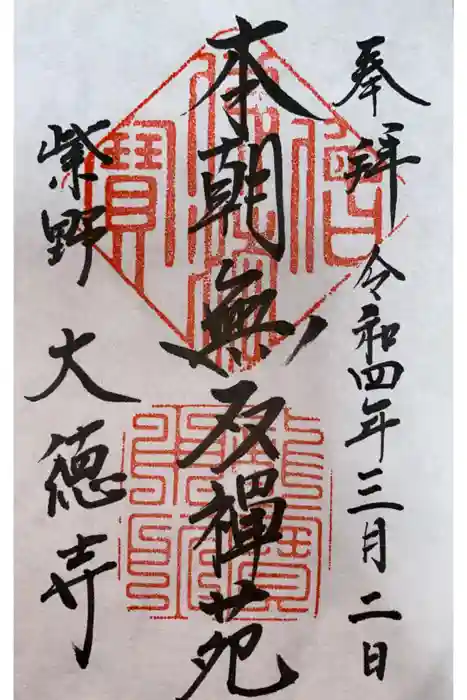 奉拝 令和四年三月二日
本朝無双禅苑
紫野 大徳寺